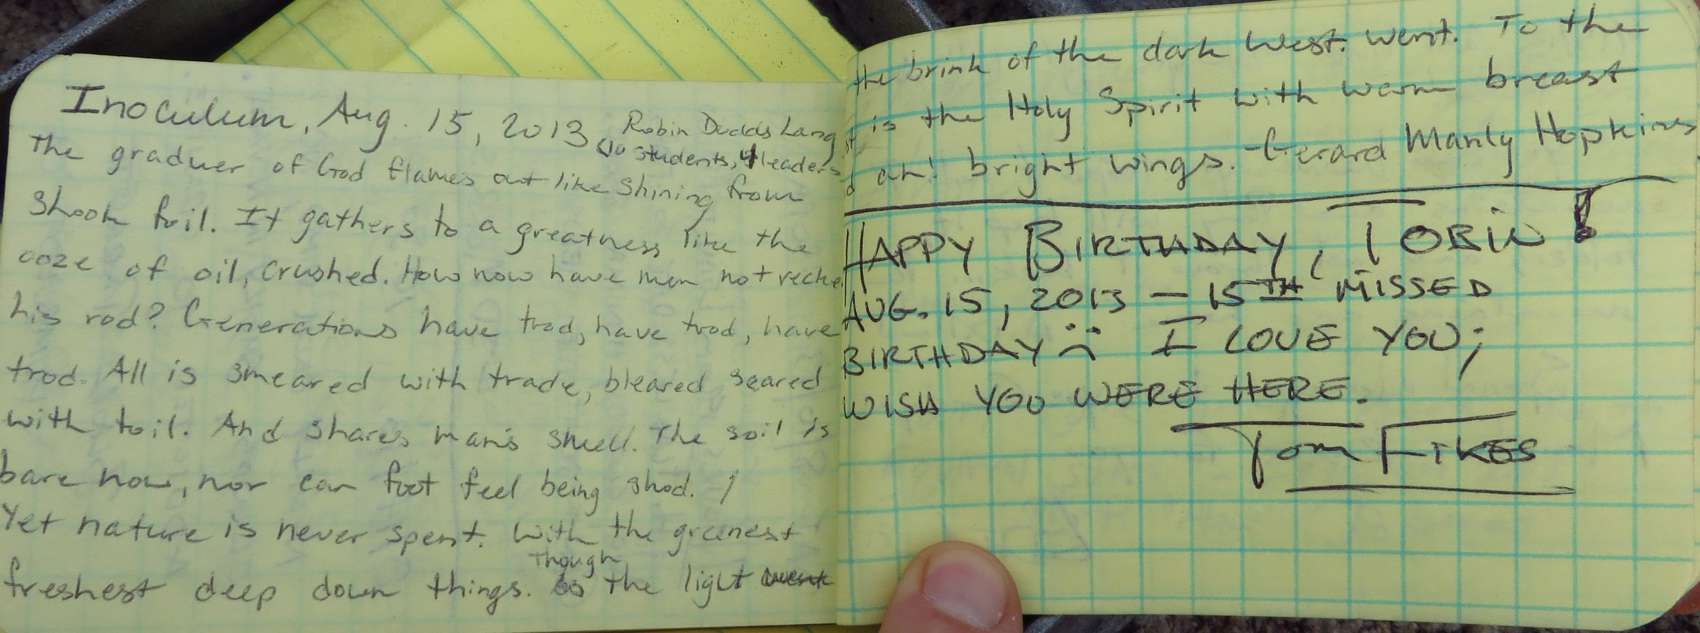 Inoculum, Aug. 15, 2013
Robin Dudds Lang
(10 students, 4 leaders
The graduer of God flames out like shining from
shook foil. It gathers to a greatness like the
ooze of oil, crushed. How now have men not recke
his rod? Generations have trod, have trod, have
trod. All is smeared with trade, bleared seared
with toil. And shares man's smell. The soil is
bare now, nor can foot feel being shod. /
Yet nature is never spent. With the greenest
freshest deep down things. Though the light went
the brink of the dark West. went. To the
is the Holy Spirit with warm breast
d ah! bright wings. - Gerard Manly Hopkins
HAPPY BIRTHDAY, TOBIN!
AUG. 15, 2013 — 15TH MISSED
BIRTHDAY :( I LOVE YOU;
WISH YOU WERE HERE.
Tom FIKES